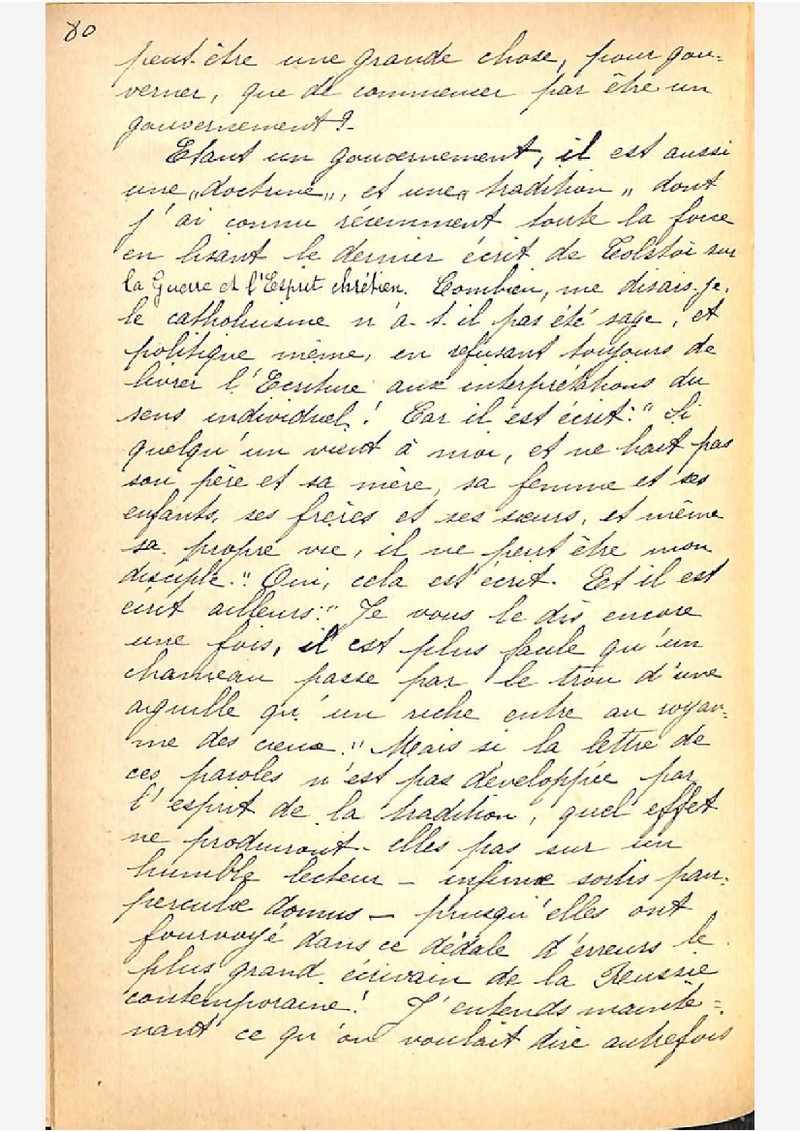 80
peut-être une grande chose, pour gou=
verner, que de commencer par être un
gouvernement ?-
Etant un gouvernement, il est aussi
une "doctrine", et une "tradition" dont
j'ai connu récemment toute la force
en lisant le dernier écrit de Tolstoï sur
la Guerre et l'Esprit chrétien. Combien, me disais-je,
le catholicisme n'a-t-il pas été sage, et
politique même, en refusant toujours de
livrer l'Ecriture aux interprétations du
sens individuel ! Car il est écrit : " Si
quelqu'un vient à moi, et ne hait pas
son père et sa mère, sa femme et ses
enfants, ses frères et ses sœurs, et même
sa propre vie, il ne peut être mon
disciple." Oui, cela est écrit. Et il est
écrit ailleurs : " Je vous le dis encore
une fois, il est plus facile qu'un
chameau passe par le trou d'une
aiguille qu'un riche entre au royau=
me des cieux." Mais si la lettre de
ces paroles n'est pas développée par
l'esprit de la tradition, quel effet
ne produiront-elles pas sur un
humble lecteur – infimæ sortis pau=
perculæ domus – puisqu'elles ont
fourvoyé dans ce dédale d'erreurs le
plus grand écrivain de la Russie
contemporaine ! J'entends mainte=
nant ce qu'on voulait dire autrefois